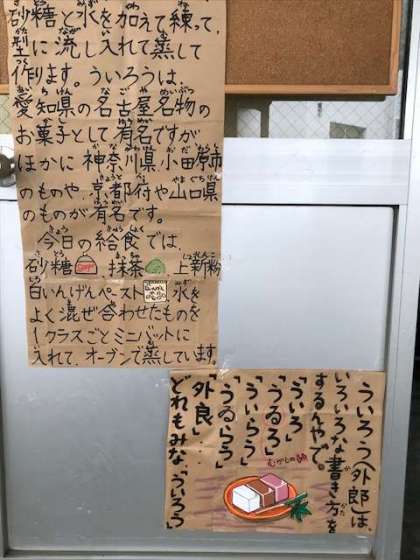 砂糖と水を加えて練って、
型に流し入れて蒸して
作ります。ういろうは、
愛知県の名古屋名物の
お菓子として有名ですが
ほかに 神奈川県小田原市
のものや、京都府や山口県
のものが有名です。
今日の給食では、
砂糖 抹茶 上新粉
白いんげんペースト 水を
よく混ぜ合わせたものを
1クラスごとミニバットに
入れて、オーブンで蒸しています。
ういろう(外郎)は、
いろいろな書き方を
するんやで。
「ういろ」
「うゐろ」
「ういらう」
「うゐらう」
「外良」
どれもみな、「ういろう」
むかしの